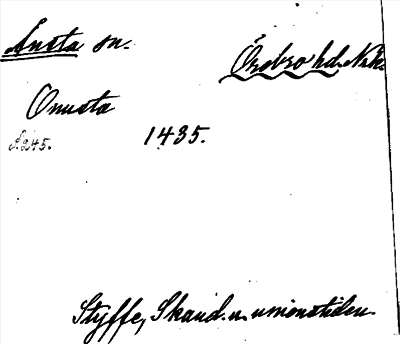 Ånsta sn.
Örebro hd. Nke.
Onusta
S. 245.
1435.
Styffe, Skand. u. unionstiden.